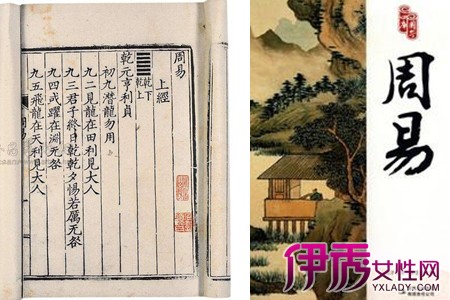 周易
上經
䷀ 乾下
乾上
乾元亨利貞
初九潛龍勿用
九二見龍在田利見大人
九三君子終日乾乾夕惕若厲无咎
九四或躍在淵无咎
九五飛龍在天利見大人
周易
伊秀女性网
YXLADY.COM